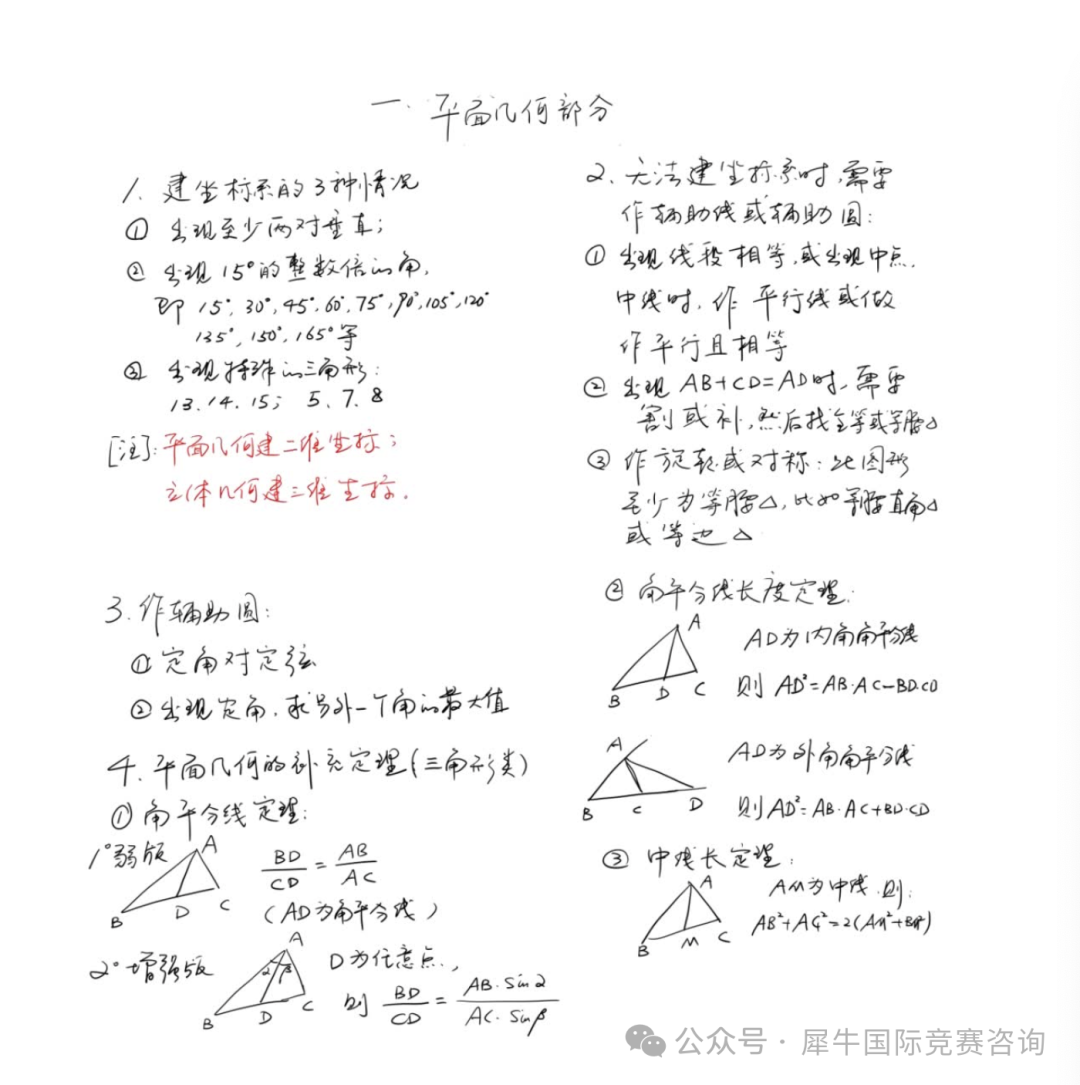 一. 平面几何部分
1. 建坐标系的3种情况
① 出现至少两对垂直;
② 出现15°的整数倍的角,
即 15°, 30°, 45°, 60°, 75°, 90°, 105°, 120°
135°, 150°, 165°等
③ 出现特殊的三角形:
13. 14. 15; 5. 7. 8
[注]: 平面几何建二维坐标;
立体几何建三维坐标.
2. 无法建坐标系时, 需要
作辅助线或辅助圆:
① 出现线段相等, 或出现中点.
中线时, 作 平行线或做
作平行且相等
② 出现 AB+CD=AD时, 需要
割或补, 然后找全等或等腰△
③ 作旋转或对称: 此图形
至少为等腰△, 比如等腰直角△
或等边△
3. 作辅助圆:
① 定角对定弦
② 出现定角, 求另外一个角的最大值
4. 平面几何的补充定理(三角形类)
① 角平分线定理:
1° 弱版
A
B D C
BD/CD = AB/AC
(AD为角平分线)
2° 增强版
A
α β
B D C
D为任意点,
则 BD/CD = AB·Sinα/AC·Sinβ
② 角平分线长度定理:
A
B D C
AD为内角角平分线
则 AD²=AB·AC-BD·CD
A
B C D
AD为外角角平分线
则AD²=AB·AC+BD·CD
③ 中线长定理:
A
B M C
AM为中线. 则:
AB²+AC²=2(AM²+BM²)
公众号·犀牛国际竞赛咨询